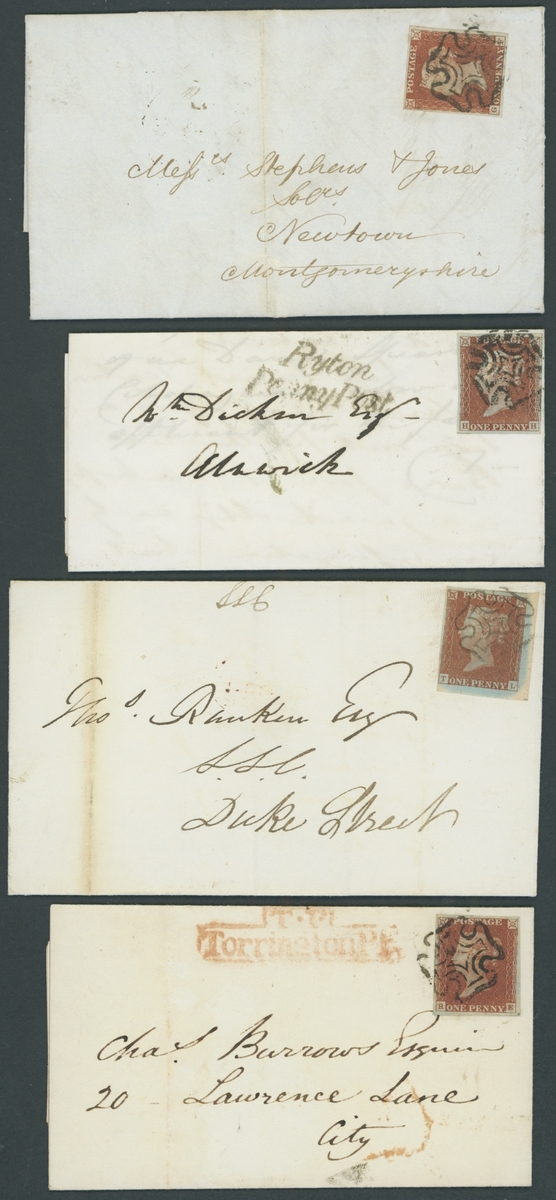 POSTAGE
ONE PENNY
G
Messrs Stephens & Jones
Solrs
Newtown
Montgomeryshire
Ryton
Penny Post
POSTAGE
H ONE PENNY H
Wm Dickson Esq
Alnwick
SSC
POSTAGE
T ONE PENNY L
Thos. Ranken Esq
S.S.C.
Duke Street
T.P
Torrington Pl
POSTAGE
ONE PENNY E
Chas. Burrows Esquire
20 Lawrence Lane
City